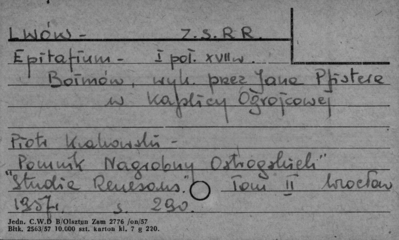 LWÓW - Z.S.R.R.
Epitafium - I poł. XVII w.
Boimów, wyk. przez Jana Pfistera
w Kaplicy Ogrojcowej
Piotr Krakowski -
"Pomnik Nagrobny Ostrogskich"
"Studia Renesans." Tom II Wrocław
1957. s. 290.
Jedn. C.W.D B/Olsztyn Zam 2776/on/57
Bltk. 2563/57 10.000 szt. karton kl. 7 g 220.